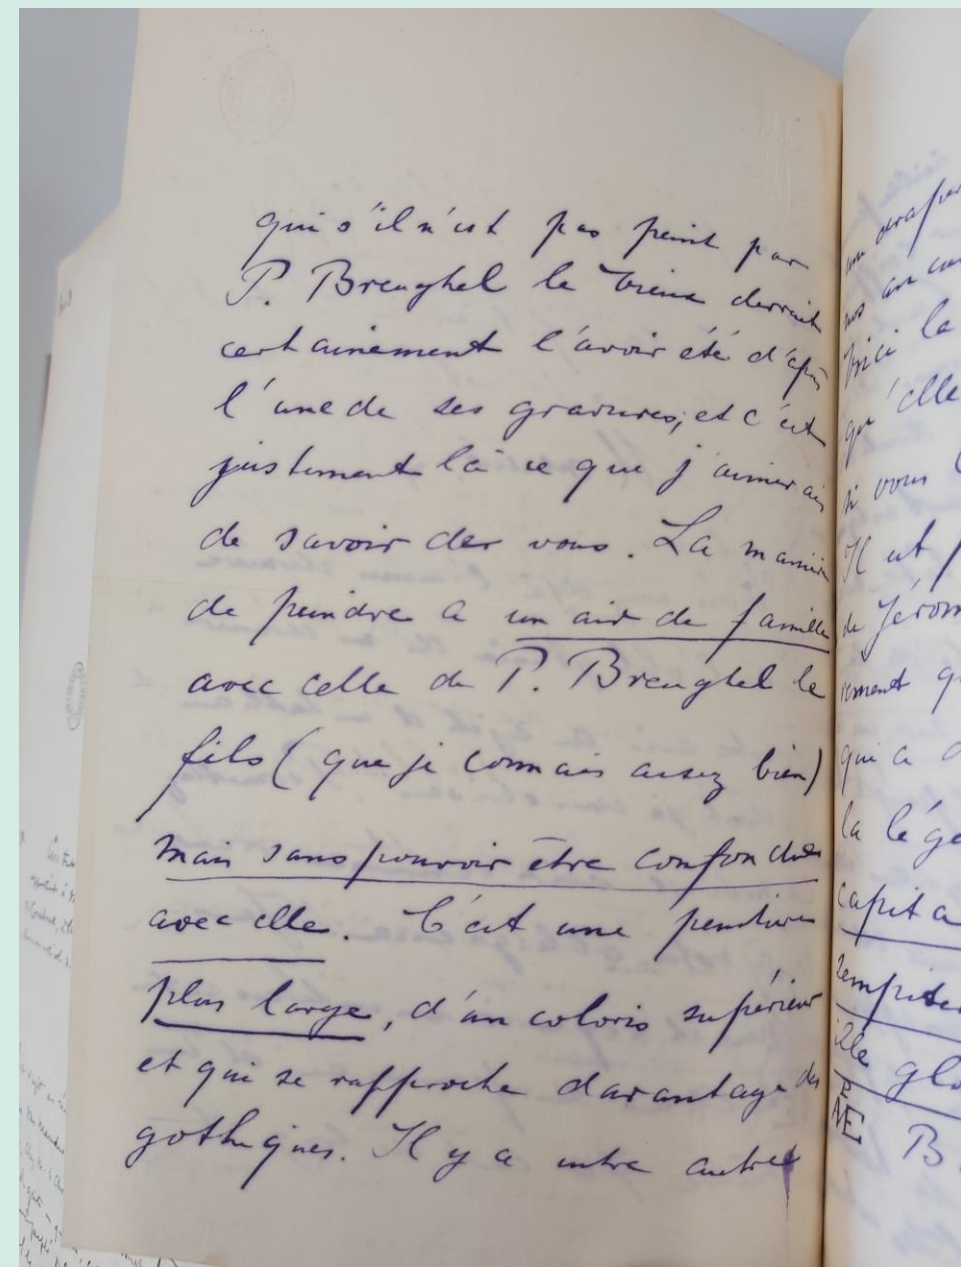 qui s'il n'est pas peint par
P. Breughel le vieux devrait
certainement l'avoir été d'après
l'une de ses gravures; et c'est
justement là ce que j'aimerais
de savoir de vous. La manière
de peindre a un air de famille
avec celle de P. Breughel le
fils (que je connais assez bien)
mais sans pouvoir être confondue
avec elle. C'est une peinture
plus large, d'un coloris supérieur
et qui se rapproche davantage des
gothiques. Il y a entre autres
la
qu'elle
si vous
Il est
de Jérom
qui a
la lége
capita
B